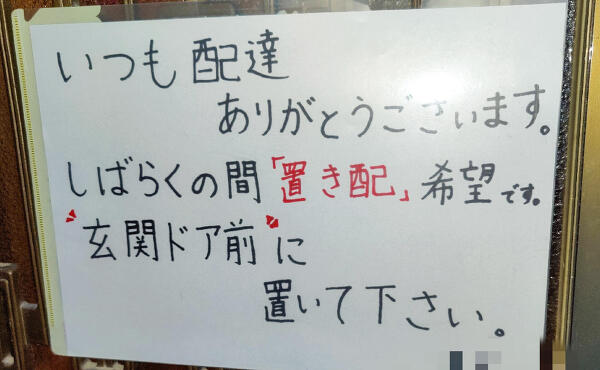 いつも配達
ありがとうございます。
しばらくの間「置き配」希望です。
"玄関ドア前"に
置いて下さい。